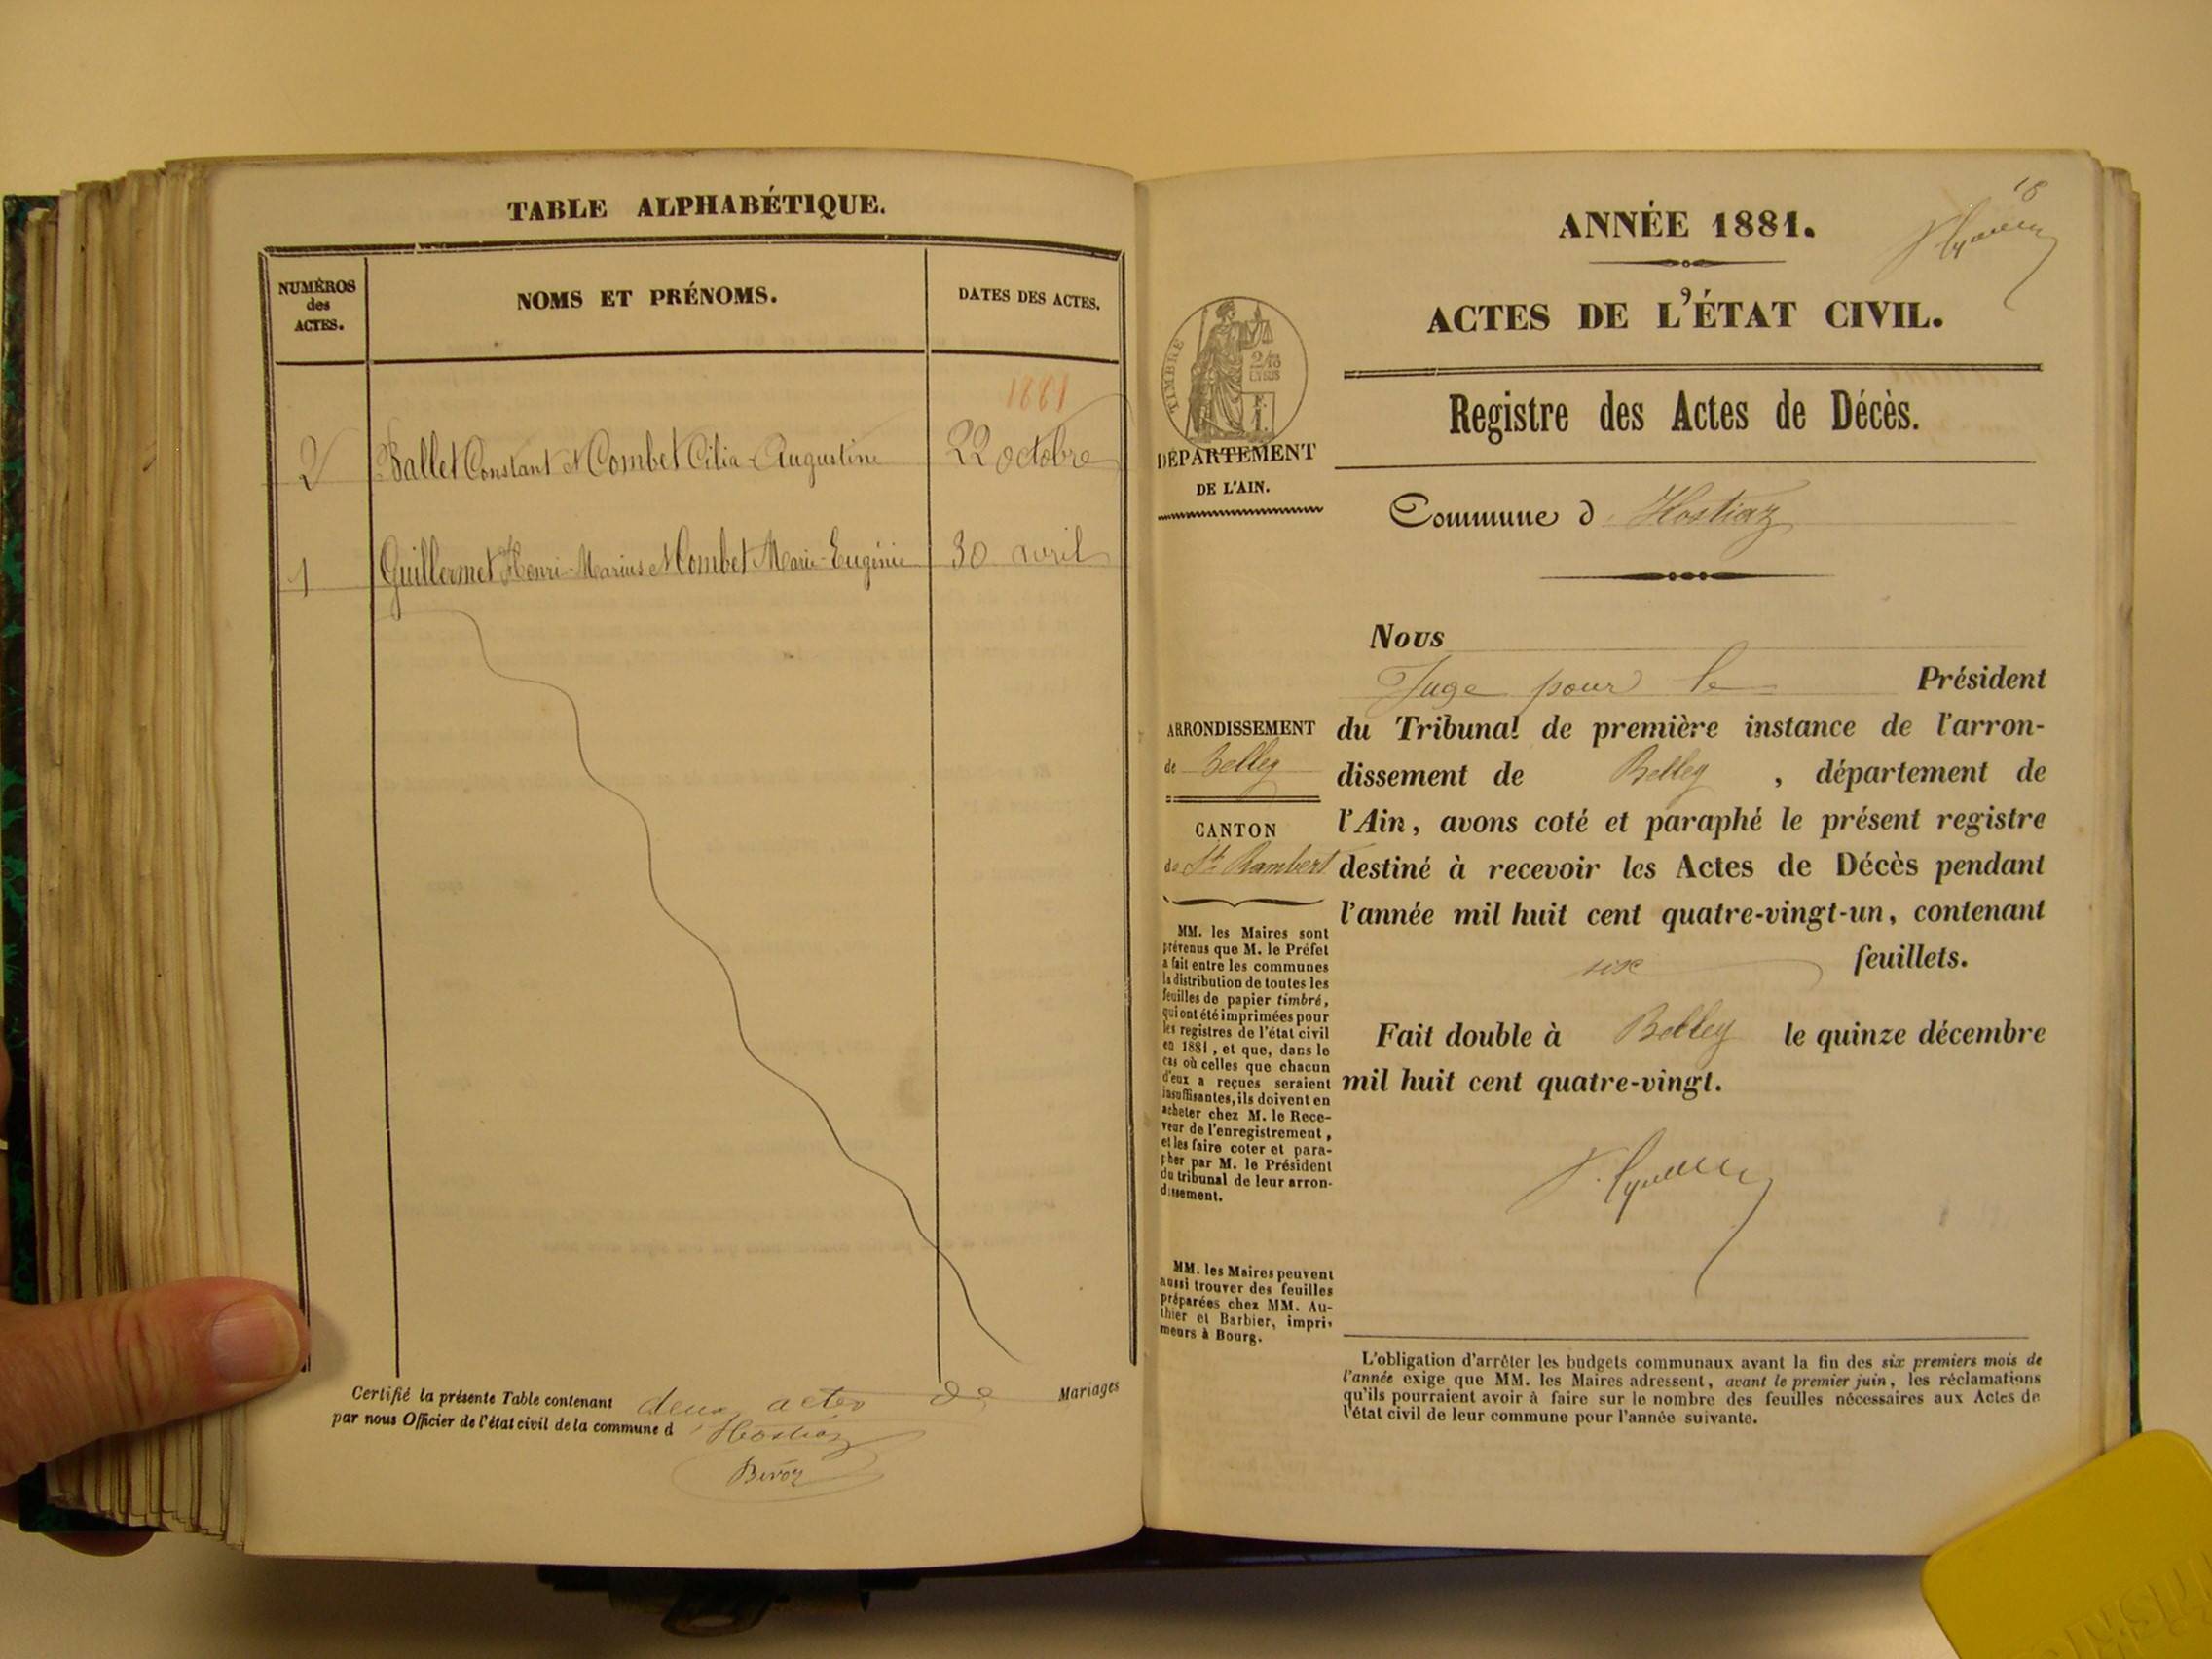 TABLE ALPHABÉTIQUE.
NUMÉROS
des
ACTES.
NOMS ET PRÉNOMS.
DATES DES ACTES.
1881
2 Ballet Constant et Combet Cilia-Augustine 22 octobre
1 Guillermet Henri-Marius et Combet Marie-Eugénie 30 avril
Certifié la présente Table contenant deux actes de Mariages
par nous Officier de l'état civil de la commune d Hostiaz
18
ANNÉE 1881.
ACTES DE L'ÉTAT CIVIL.
TIMBRE
Registre des Actes de Décès.
DÉPARTEMENT
DE L'AIN.
Commune d Hostiaz
Nous
Juge pour le Président
du Tribunal de première instance de l'arron-
dissement de Belley, département de
l'Ain, avons coté et paraphé le présent registre
destiné à recevoir les Actes de Décès pendant
l'année mil huit cent quatre-vingt-un, contenant
six feuillets.
Fait double à Belley le quinze décembre
mil huit cent quatre-vingt.
ARRONDISSEMENT
de Belley
CANTON
de St Rambert
MM. les Maires sont
prévenus que M. le Préfet
a fait entre les communes
la distribution de toutes les
feuilles de papier timbré,
qui ont été imprimées pour
les registres de l'état civil
en 1881, et que, dans le
cas où celles que chacun
d'eux a reçues seraient
insuffisantes, ils doivent en
acheter chez M. le Rece-
veur de l'enregistrement,
et les faire coter et para-
pher par M. le Président
du tribunal de leur arron-
dissement.
MM. les Maires peuvent
aussi trouver des feuilles
préparées chez MM. Au-
thier et Barbier, impri-
meurs à Bourg.
L'obligation d'arrêter les budgets communaux avant la fin des six premiers mois de
l'année exige que MM. les Maires adressent, avant le premier juin, les réclamations
qu'ils pourraient avoir à faire sur le nombre des feuilles nécessaires aux Actes de
l'état civil de leur commune pour l'année suivante.